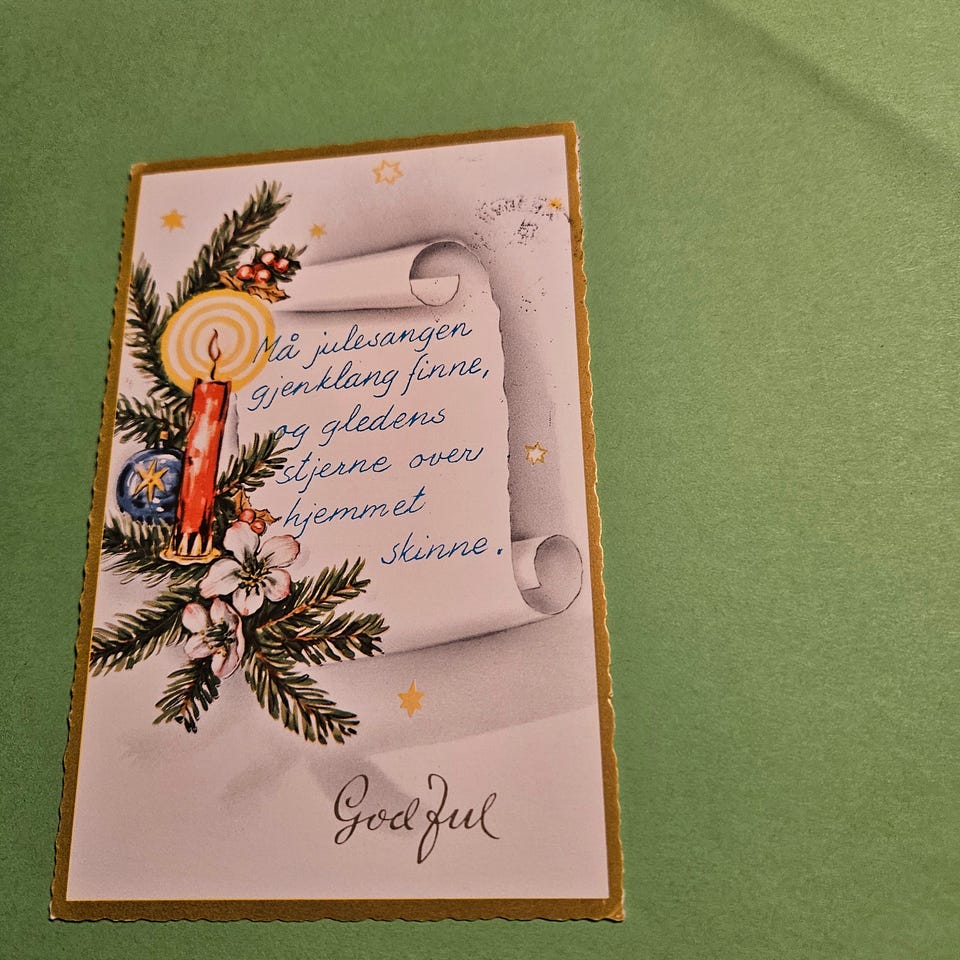 Må julesangen
gjenklang finne,
og gledens
stjerne over
hjemmet
skinne.
God Jul